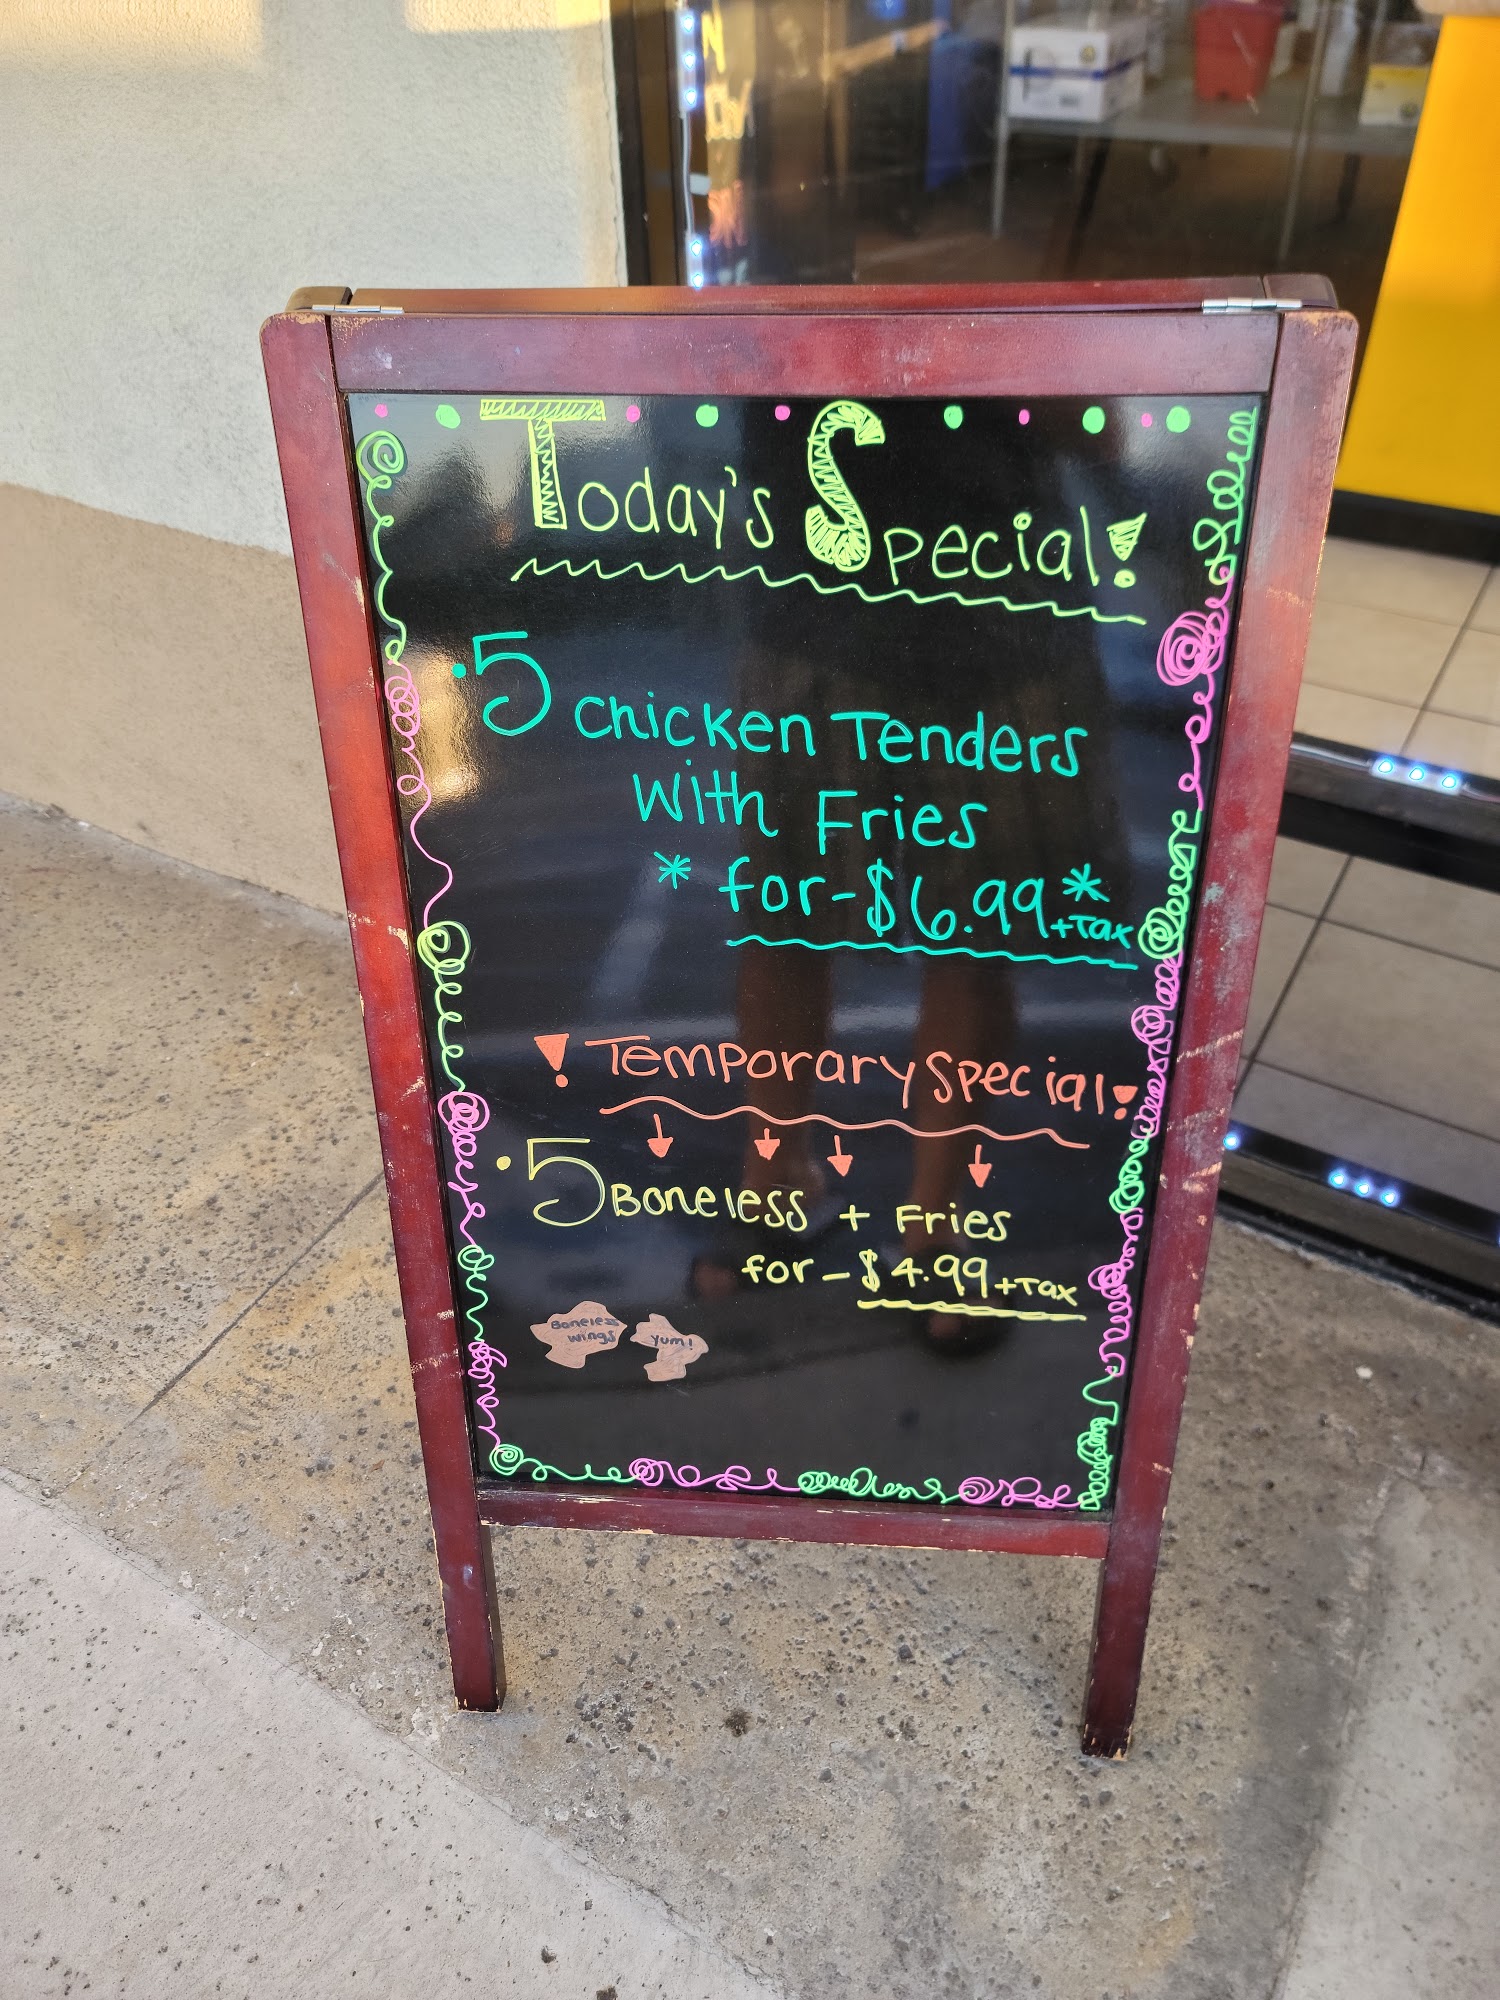 Today's Special!
• 5 Chicken Tenders
With Fries
* for - $6.99 * + Tax
! Temporary Special!
• 5 Boneless + Fries
for - $4.99 + Tax
Boneless
Wings
Yum!